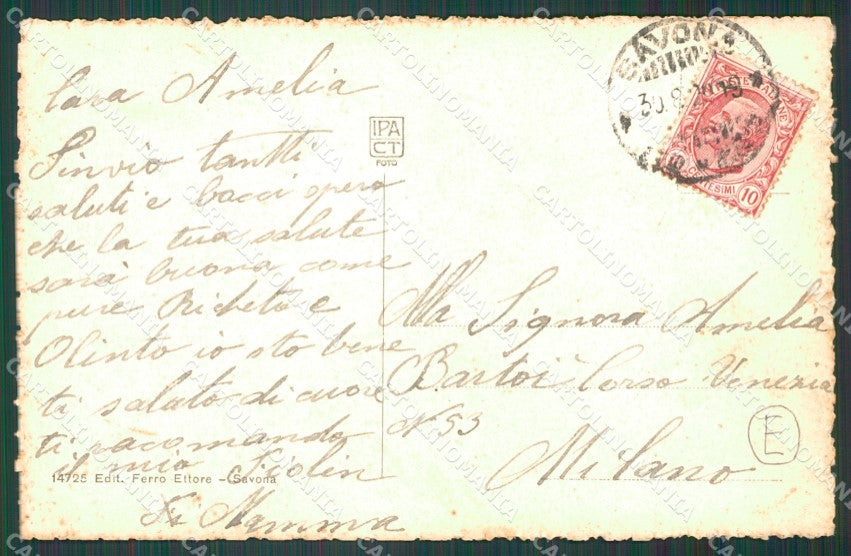 Cara Amelia
T'invio tantti
saluti e bacci spero
che la tua salute
sarà buona come
pure Richeto e
Olinto io sto bene
ti saluto di cuore
ti racomando
il mio Fiolin
Mamma
14725 Edit. Ferro Ettore - Savona
IPA
CT
FOTO
SAVONA
30.8
POSTE ITALIANE
CENTESIMI 10
Alla Signora Amelia
Bartoi Corso Venezia
N 53
Milano
E
CARTOLINOMANIA